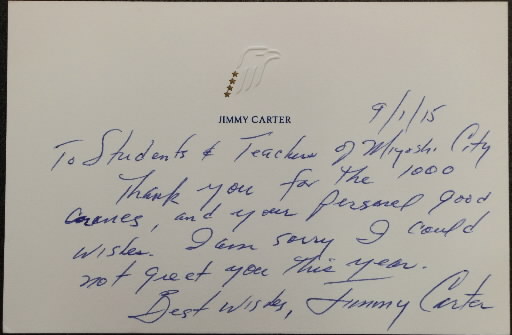 JIMMY CARTER
9/1/15
To Students & Teachers of Miyoshi City
Thank you for the 1000
cranes, and your personal good
wishes. I am sorry I could
not greet you this year.
Best wishes, Jimmy Carter